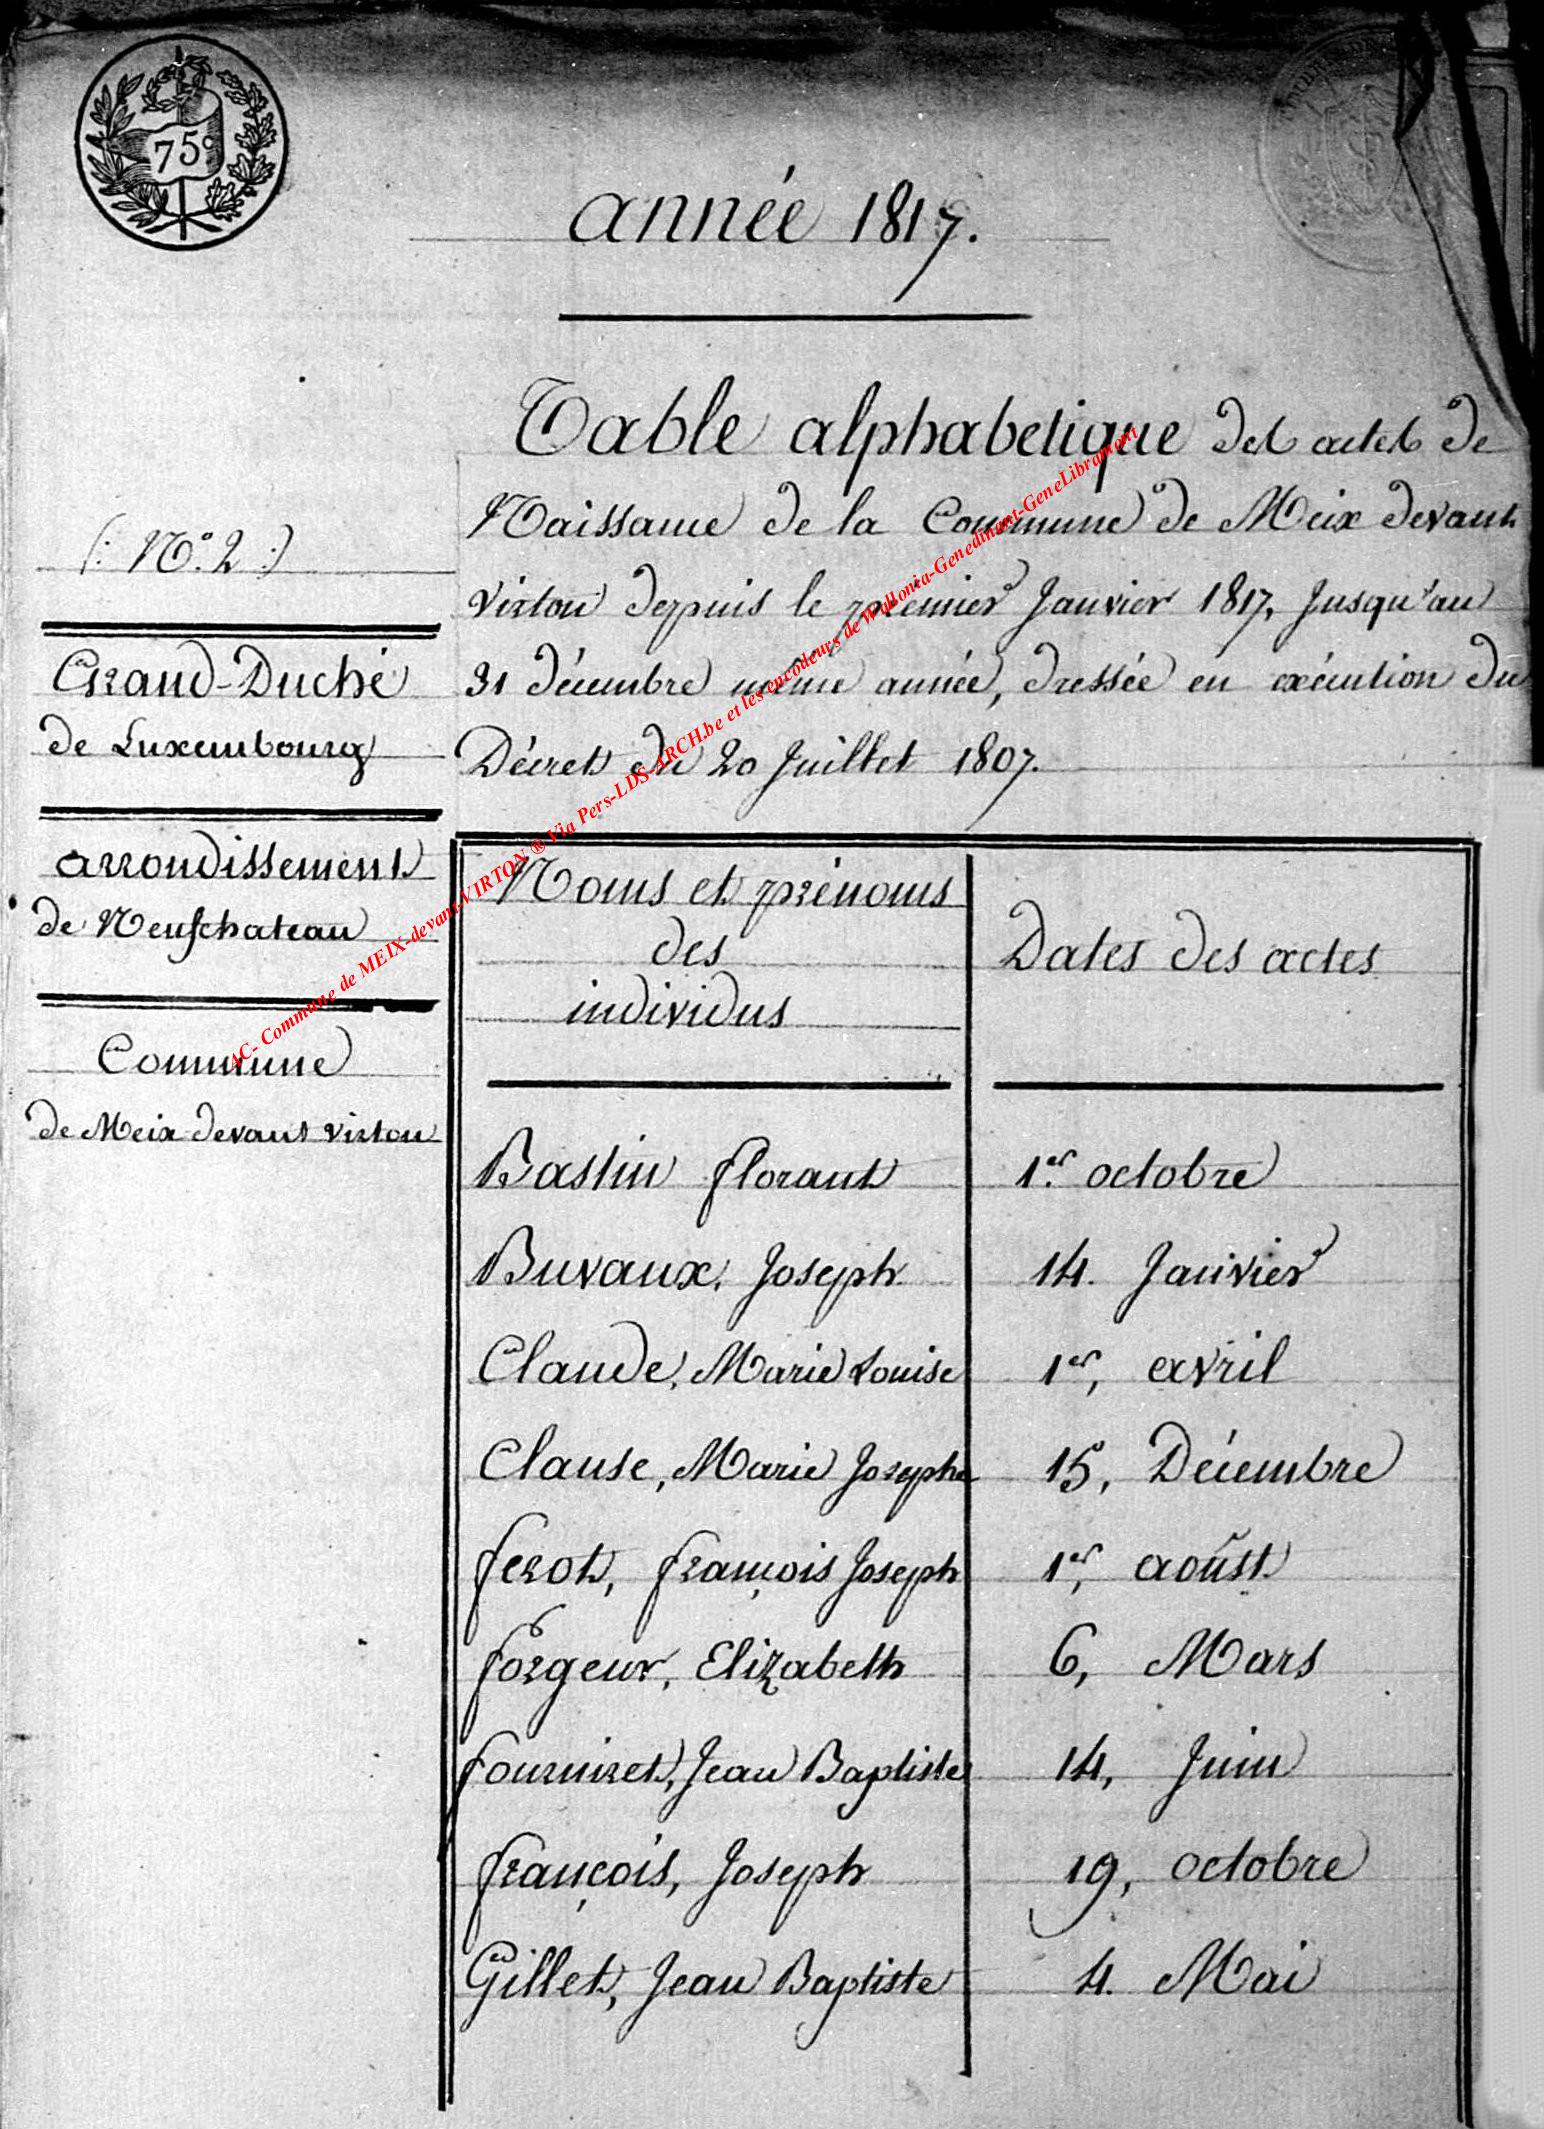 75 c
année 1817.
Table alphabetique des actes de
Naissance de la Commune de Meix devant
Virton depuis le premier Janvier 1817, Jusqu'au
31 décembre même année, dressée en exécution du
Décret du 20 Juillet 1807.
(: N.° 2 :)
Grand-Duché
de Luxembourg
arrondissement
de Neufchateau
Commune
de Meix devant Virton
Noms et prénoms
des
individus
Dates des actes
Bastin florant 1.er octobre
Buvaux, Joseph 14. Janvier
Claude, Marie Louise 1er, avril
Clause, Marie Josephe 15, Décembre
ferot, françois Joseph 1er, aoust
forgeur, Elizabeth 6, Mars
fourniret, Jean Baptiste 14, Juin
françois, Joseph 19, octobre
Gillet, Jean Baptiste 4. Mai
AC- Commune de MEIX-devant-VIRTON ® Via Pers-LDS-ARCH.be et les encodeurs de Wallonia-Genedinant-GeneLibramont